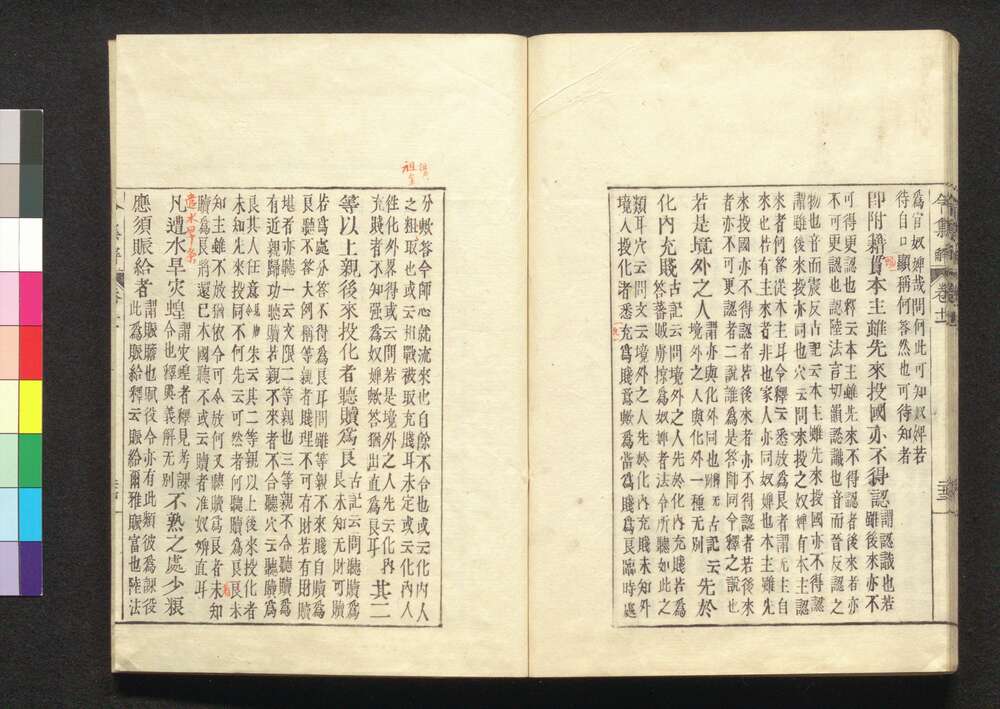 爲官奴婢哉問何此可知奴婢若
待自口顯稱何答然也可待知者
即附籍貫本主雖先來投國亦不得認謂認識也若雖後來亦不
可得更認也釋云本主雖先來不得認者後來者亦
不可更認也認陸法言切韻認識也音而晉反認之
物也音而震反古記云本主雖先來投國亦不得認
謂雖後來投亦同也穴云問來投之奴婢有本主認
來者何答從本主耳令釋云悉放爲良者謂无主自
來也若有主來者非也家人亦同奴婢也本主雖先
來投國亦不得認者若後來者亦不得認者若後來
者亦不可更認者二説誰爲是答師同令釋之説也
若是境外之人謂亦與化外同也古記云先於境外之人與化外一種无別
化內充賤古記云問境外之人先於化內充賤若爲答蕃賊虜掠爲奴婢者法令所聽如此之
類耳穴云問文云境外之人先於化內充賤未知外
境人投化者悉充爲賤哉爲當爲賤爲良臨時處
分歟答令師心就流來也自餘不合也或云化內人
之粗取也或云相戰被取充賤耳未定或云化內人
往化外畧得或云問若是境外之人先云化內其二
充賤者不知强爲奴婢歟答猶出直爲良耳
等以上親後來投化者聽贖爲良古記云問聽贖爲良未知无財可贖
若爲處分答不得爲良耳問雖等親不來賤自贖爲
良聽不答大例稱等親者賤理不可有財若有財贖
堪者亦聽一云文限二等親也三等親不合聽贖爲
有近親歸功聽贖若親不來者不合聽穴云聽贖爲
良其人任意耳朱云其二等親以上後來投化者
未知先來投同不何先云可然者何聽贖爲良良未
知主雖不放猶依令可令放何又聽贖爲良者未知
贖爲良訖還已本國聽不或云贖者准奴婢直耳
遭水旱条
凡遭水旱灾蝗謂灾蝗者釋見考課令也釋與義解无別不熟之處少粮
應須賑給者謂賑贍也賦役令亦有此類彼爲課役此爲賑給釋云賑給爾雅賑富也陸法